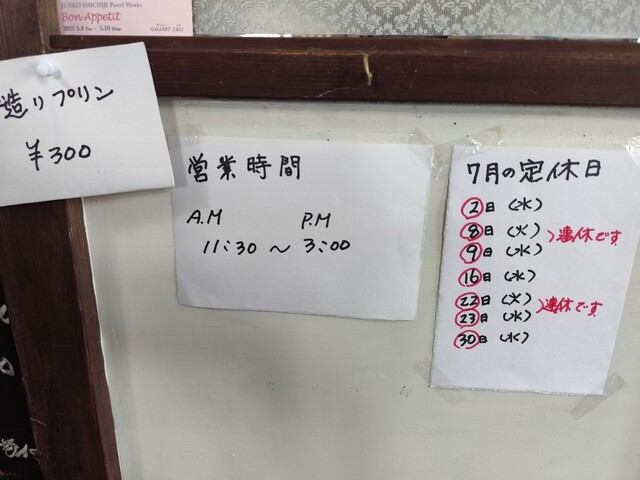 JUNKO SHICHIJI Pastel Works
Bon Appetit
GALLERY
造りプリン
¥300
営業時間
A.M P.M
11:30 ～ 3:00
7月の定休日
2日(水)
8日(火)
9日(水)
連休です
16日(水)
22日(火)
23日(水)
連休です
30日(水)